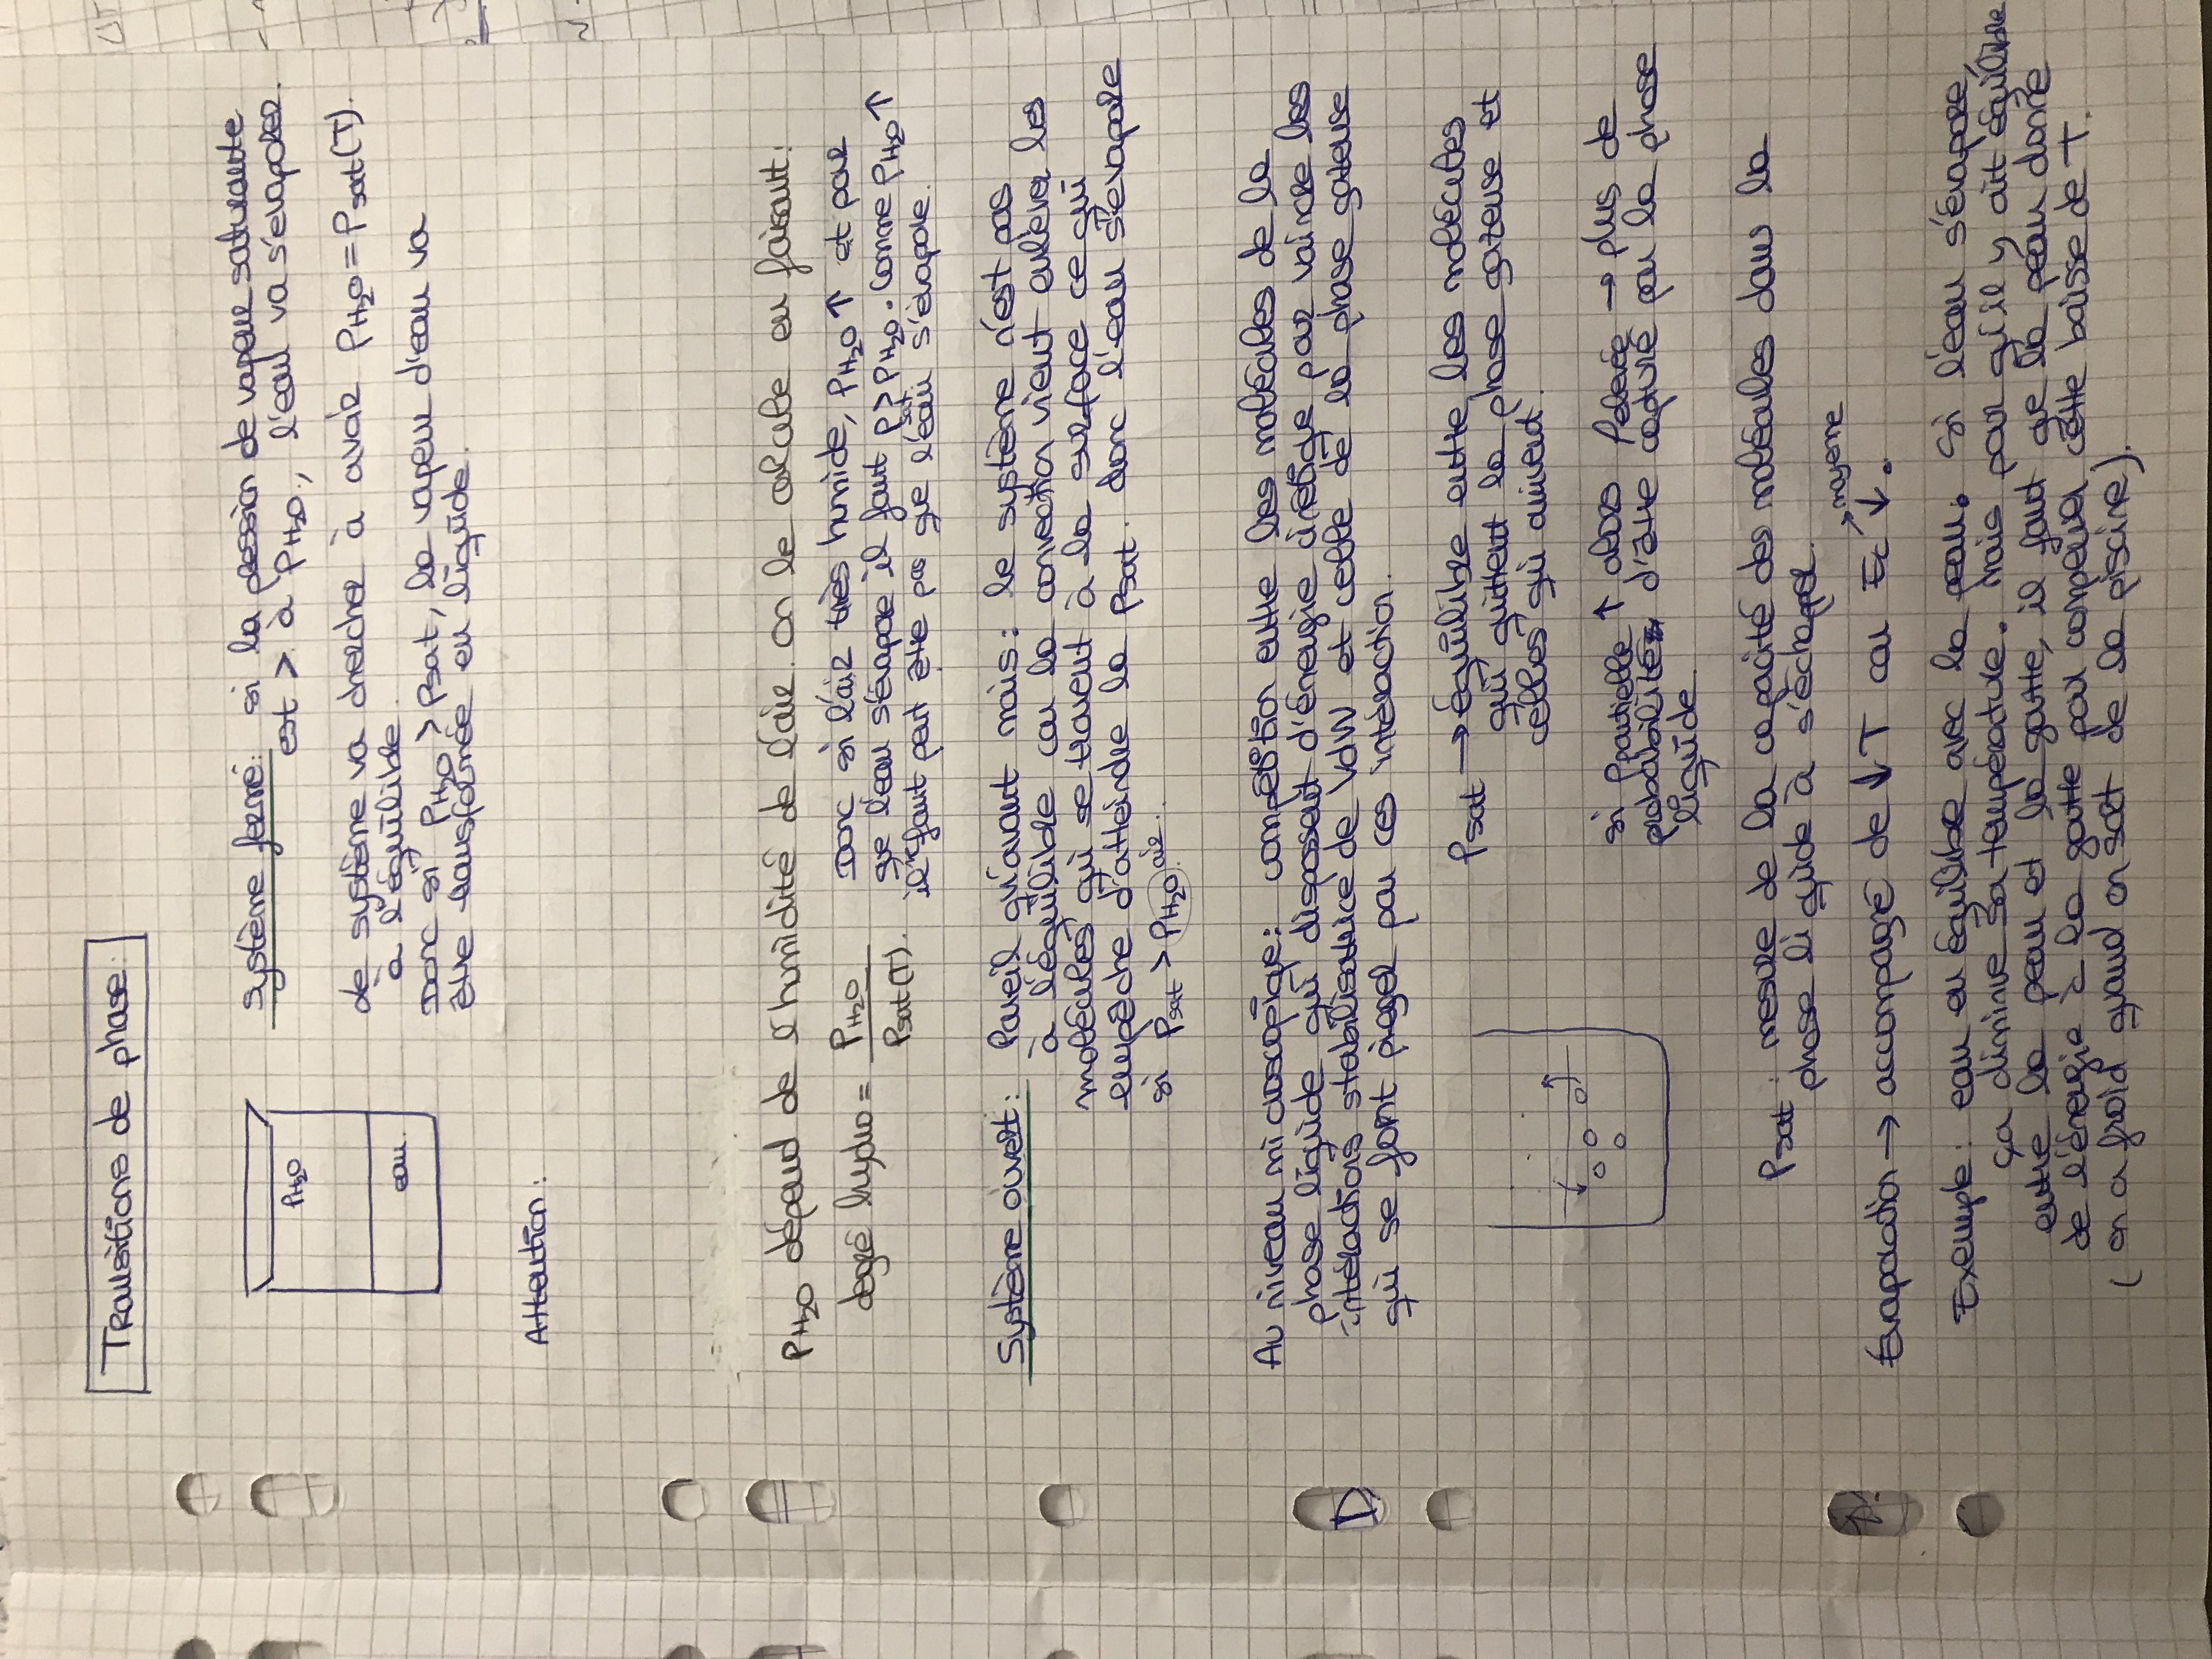 Transitions de phase:
PH2O
eau.
Système fermé: si la pression de vapeur saturante
est > à PH2O, l'eau va s'évaporer.
Le système va chercher à avoir PH2O = Psat(T).
à l'équilibre.
Donc si PH2O > Psat, la vapeur d'eau va
être transformée en liquide.
Attention:
PH2O dépend de l'humidité de l'air. On le calcule en faisant:
degré hydro = PH2O / Psat(T).
Donc si l'air très humide, PH2O ↑ et pour
que l'eau s'évapore il faut Psat > PH2O. Comme PH2O ↑
il faut peut être pas que l'eau s'évapore.
Système ouvert: Pareil qu'avant mais: le système n'est pas
à l'équilibre car la convection vient enlever les
molécules qui se trouvent à la surface ce qui
empêche d'atteindre la Psat. donc l'eau s'évapore
si Psat > PH2O air.
Au niveau microscopique: compétition entre les molécules de la
phase liquide qui dispossent d'énergie cinétique pour vaincre les
intéractions stabilisatrice de VdW et celle de la phase gazeuse
qui se font piéger par ces intéraction.
Psat → équilibre entre les molécules
qui quittent la phase gazeuse et
celles qui arrivent.
si Ppartielle ↑ alors Pelevée → plus de
probabilité d'être capturé par la phase
liquide.
Psat: mesure de la capacité des molécules dans la
phase liquide à s'échapper.
Évaporation → accompagné de ↓ T car Ec ↓.
→ moyenne
Exemple: eau en équilibre avec la peau. Si l'eau s'évapore,
ça diminue sa température. Mais pour qu'il y ait équilibre
entre la peau et la goutte, il faut que la peau donne
de l'énergie à la goutte pour compenser cette baisse de T.
(on a froid quand on sort de la piscine).